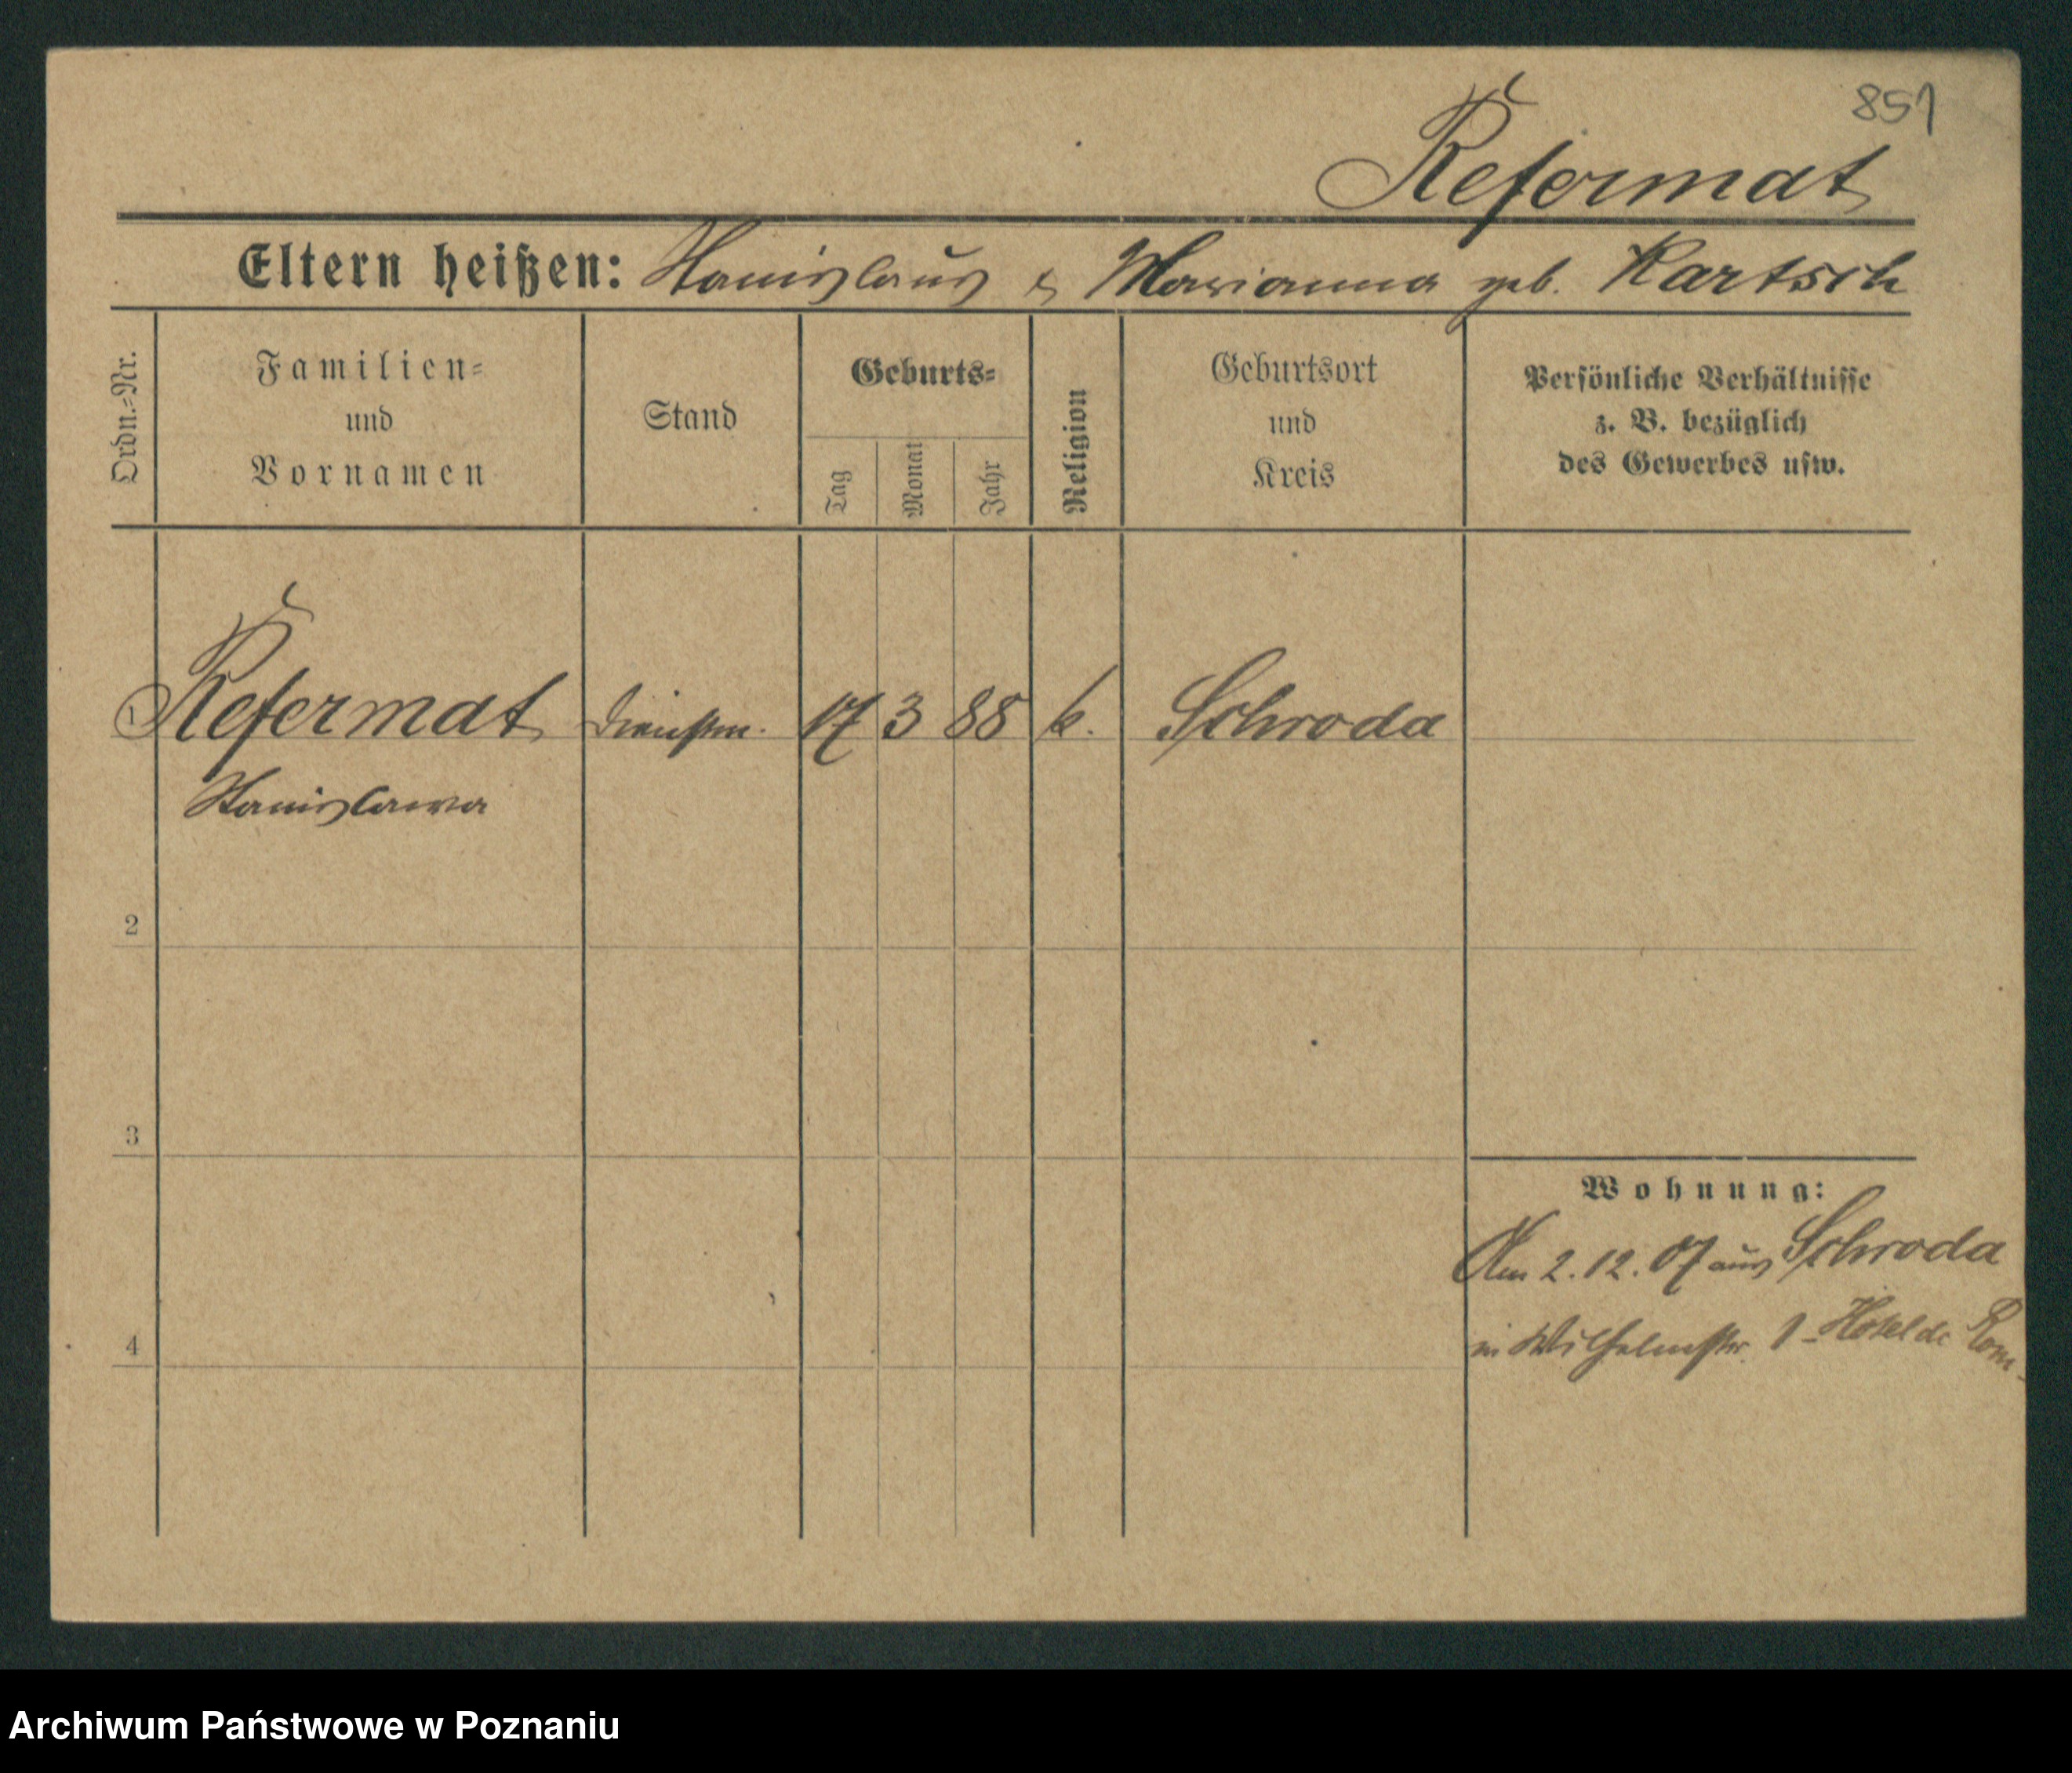 851
Refermat
Eltern heißen: Stanislaus & Marianna geb. Kartsch
Ordn.-Nr.
Familien- und Vornamen
Stand
Geburts-
Tag
Monat
Jahr
Religion
Geburtsort und Kreis
Persönliche Verhältnisse z. B. bezüglich des Gewerbes usw.
1 Refermat Dienstm. 17 3 88 k. Schroda
Stanislawa
2
3
Wohnung:
Am 2.12.07 aus Schroda
4
in Wilhelmstr. 1 - Hotel de Rom
Archiwum Państwowe w Poznaniu